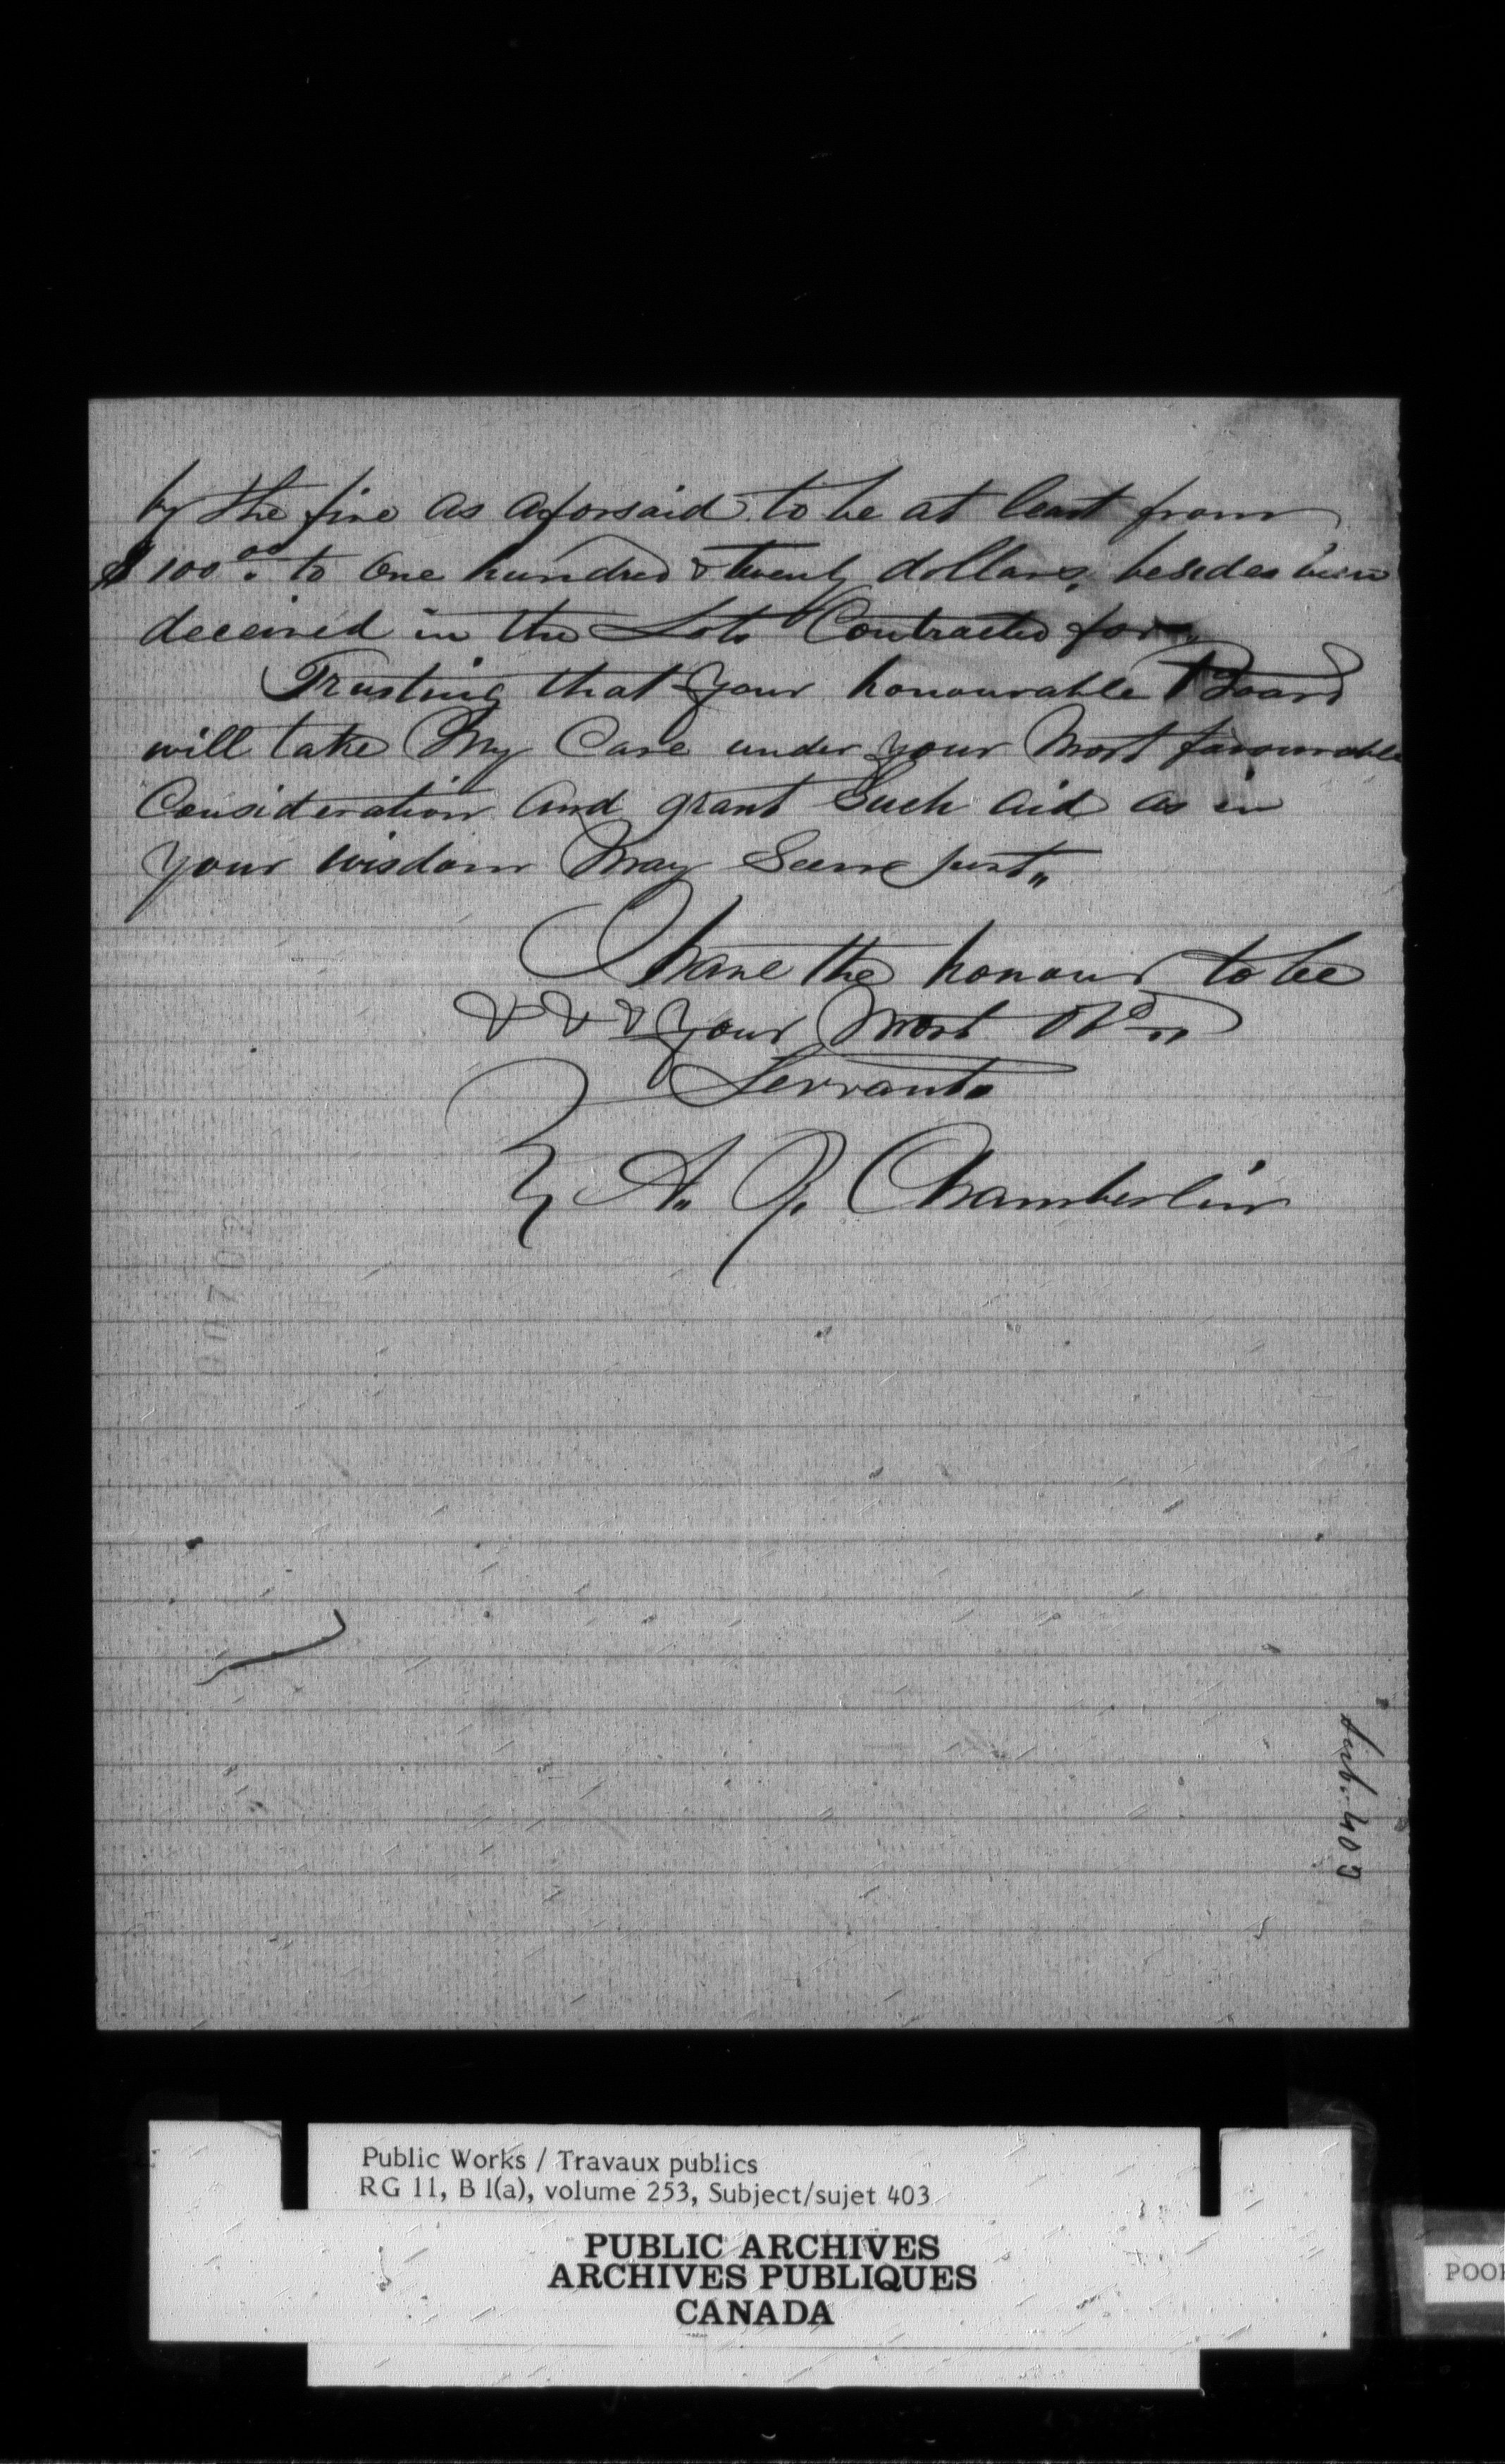 by the fire as aforsaid to be at least from
$100.00 to One hundred & twenty dollars, besides been
deceived in the Lots Contracted for.
Trusting that your honourable Board
will take My Case under your Most favourable
Consideration and grant Such aid as in
your wisdom May Seem just„
I have the honour to be
& & & your Most Obd„
Servant.
A. Chamberlin
Sub. 403
Public Works / Travaux publics
RG 11, B 1(a), volume 253, Subject/sujet 403
PUBLIC ARCHIVES
ARCHIVES PUBLIQUES
CANADA